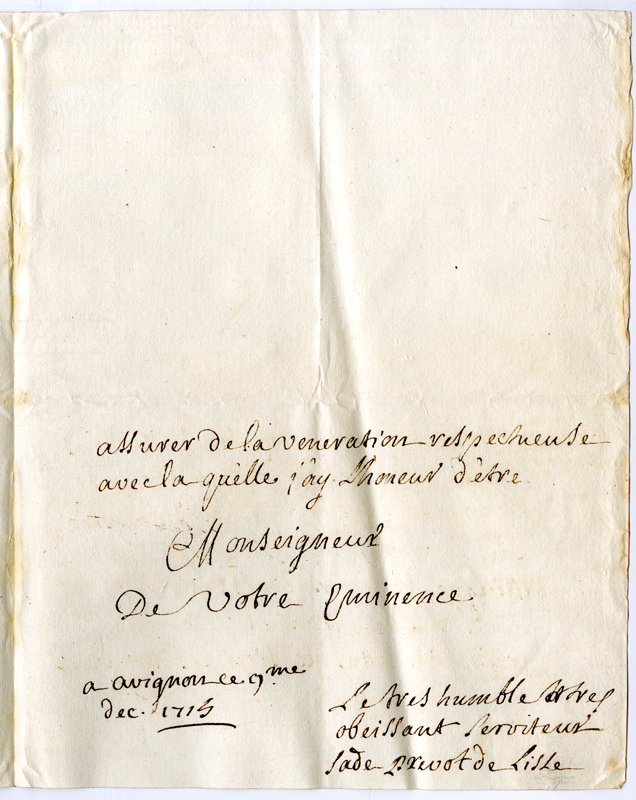 assurer de la veneration respectueuse
avec la quelle j'ay l'honeur d'etre
Monseigneur
De Votre Eminence
a avignon ce 9me
dec.
Le tres humble & tres
obeissant serviteur
Sade prevot de Lisle